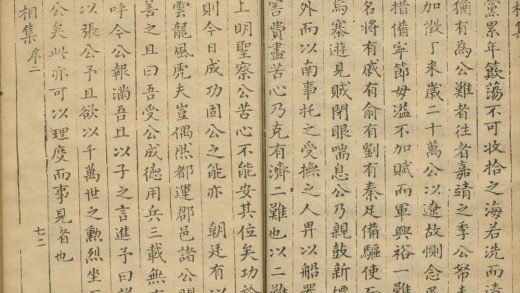 相集
黨累年篏蕩不可收拾之海若洗而清
獨有為公難者徃者嘉靖之季公帑未
加徵丁来歳二十萬公以遼故惻念
措備寧節毋溢不加賦而軍興裕一難
名将有戚有俞有劉有秦足備驅使
塞遊見賊閉眼喘息公乃親鼓新
外而以南事托之受撫之人畀以船器
害費盡苦心乃克有濟二難也以二難
上明聖察公苦心不能安其位矣功
則今日成功固公之能亦 朝廷有以
雲龍風虎夫豈偶然都運郡邑諸公
善之且曰吾受公成德用兵三載無
呼今公報滿吾且以子之言進予曰
以張公予且欲以千萬世之勲烈坐
公矣此亦可以理度而事見者也
相集 序二
七二